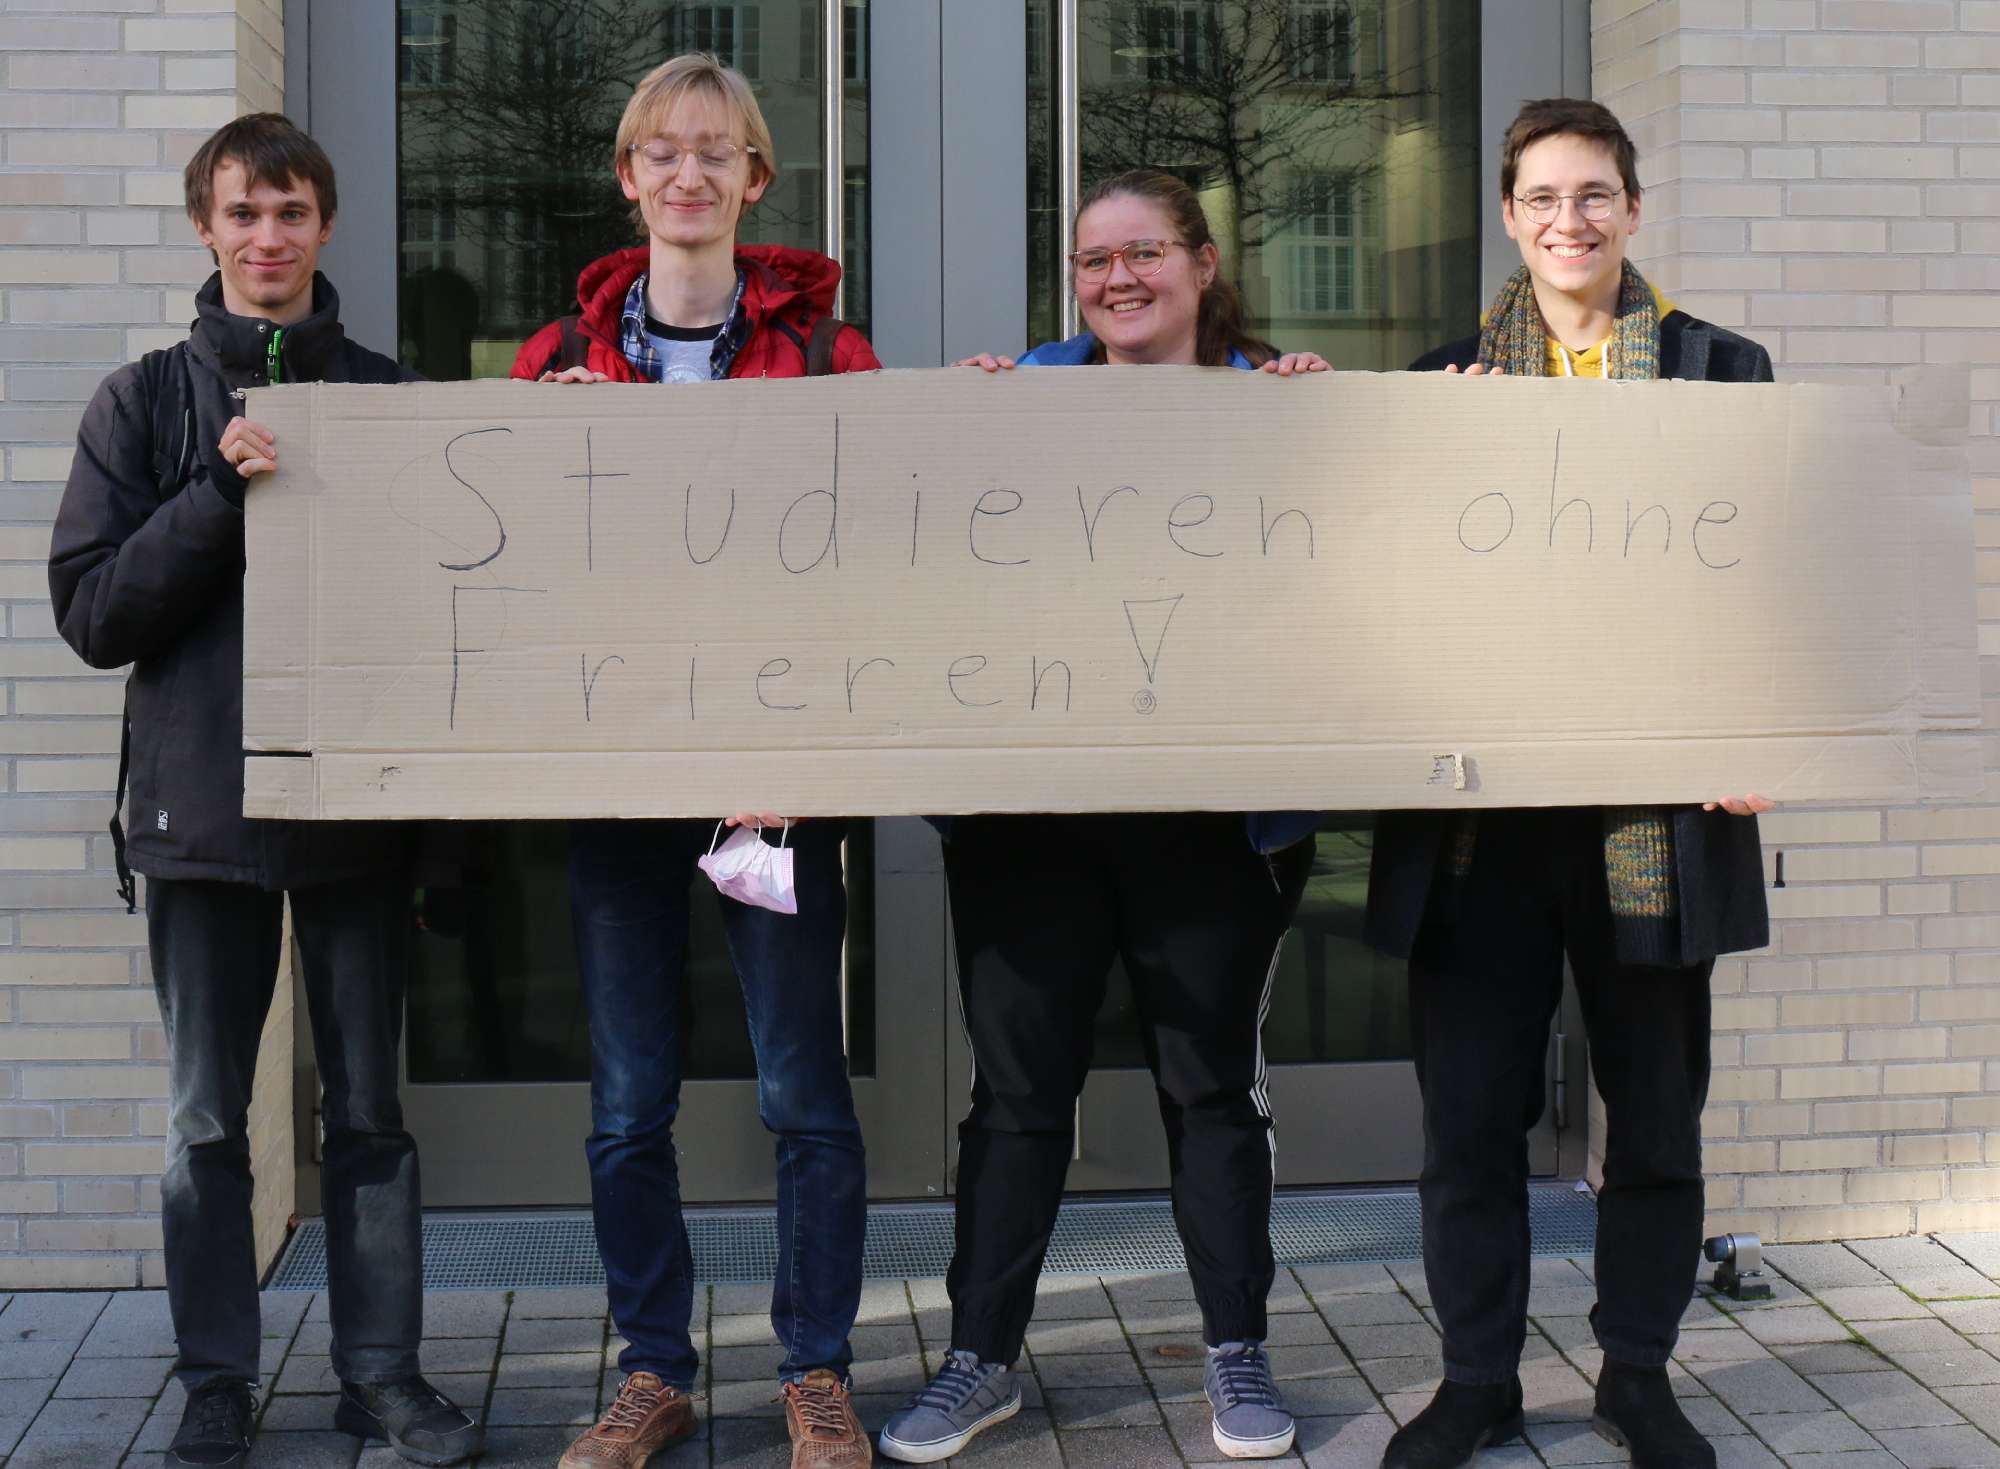 Studieren ohne
Frieren!